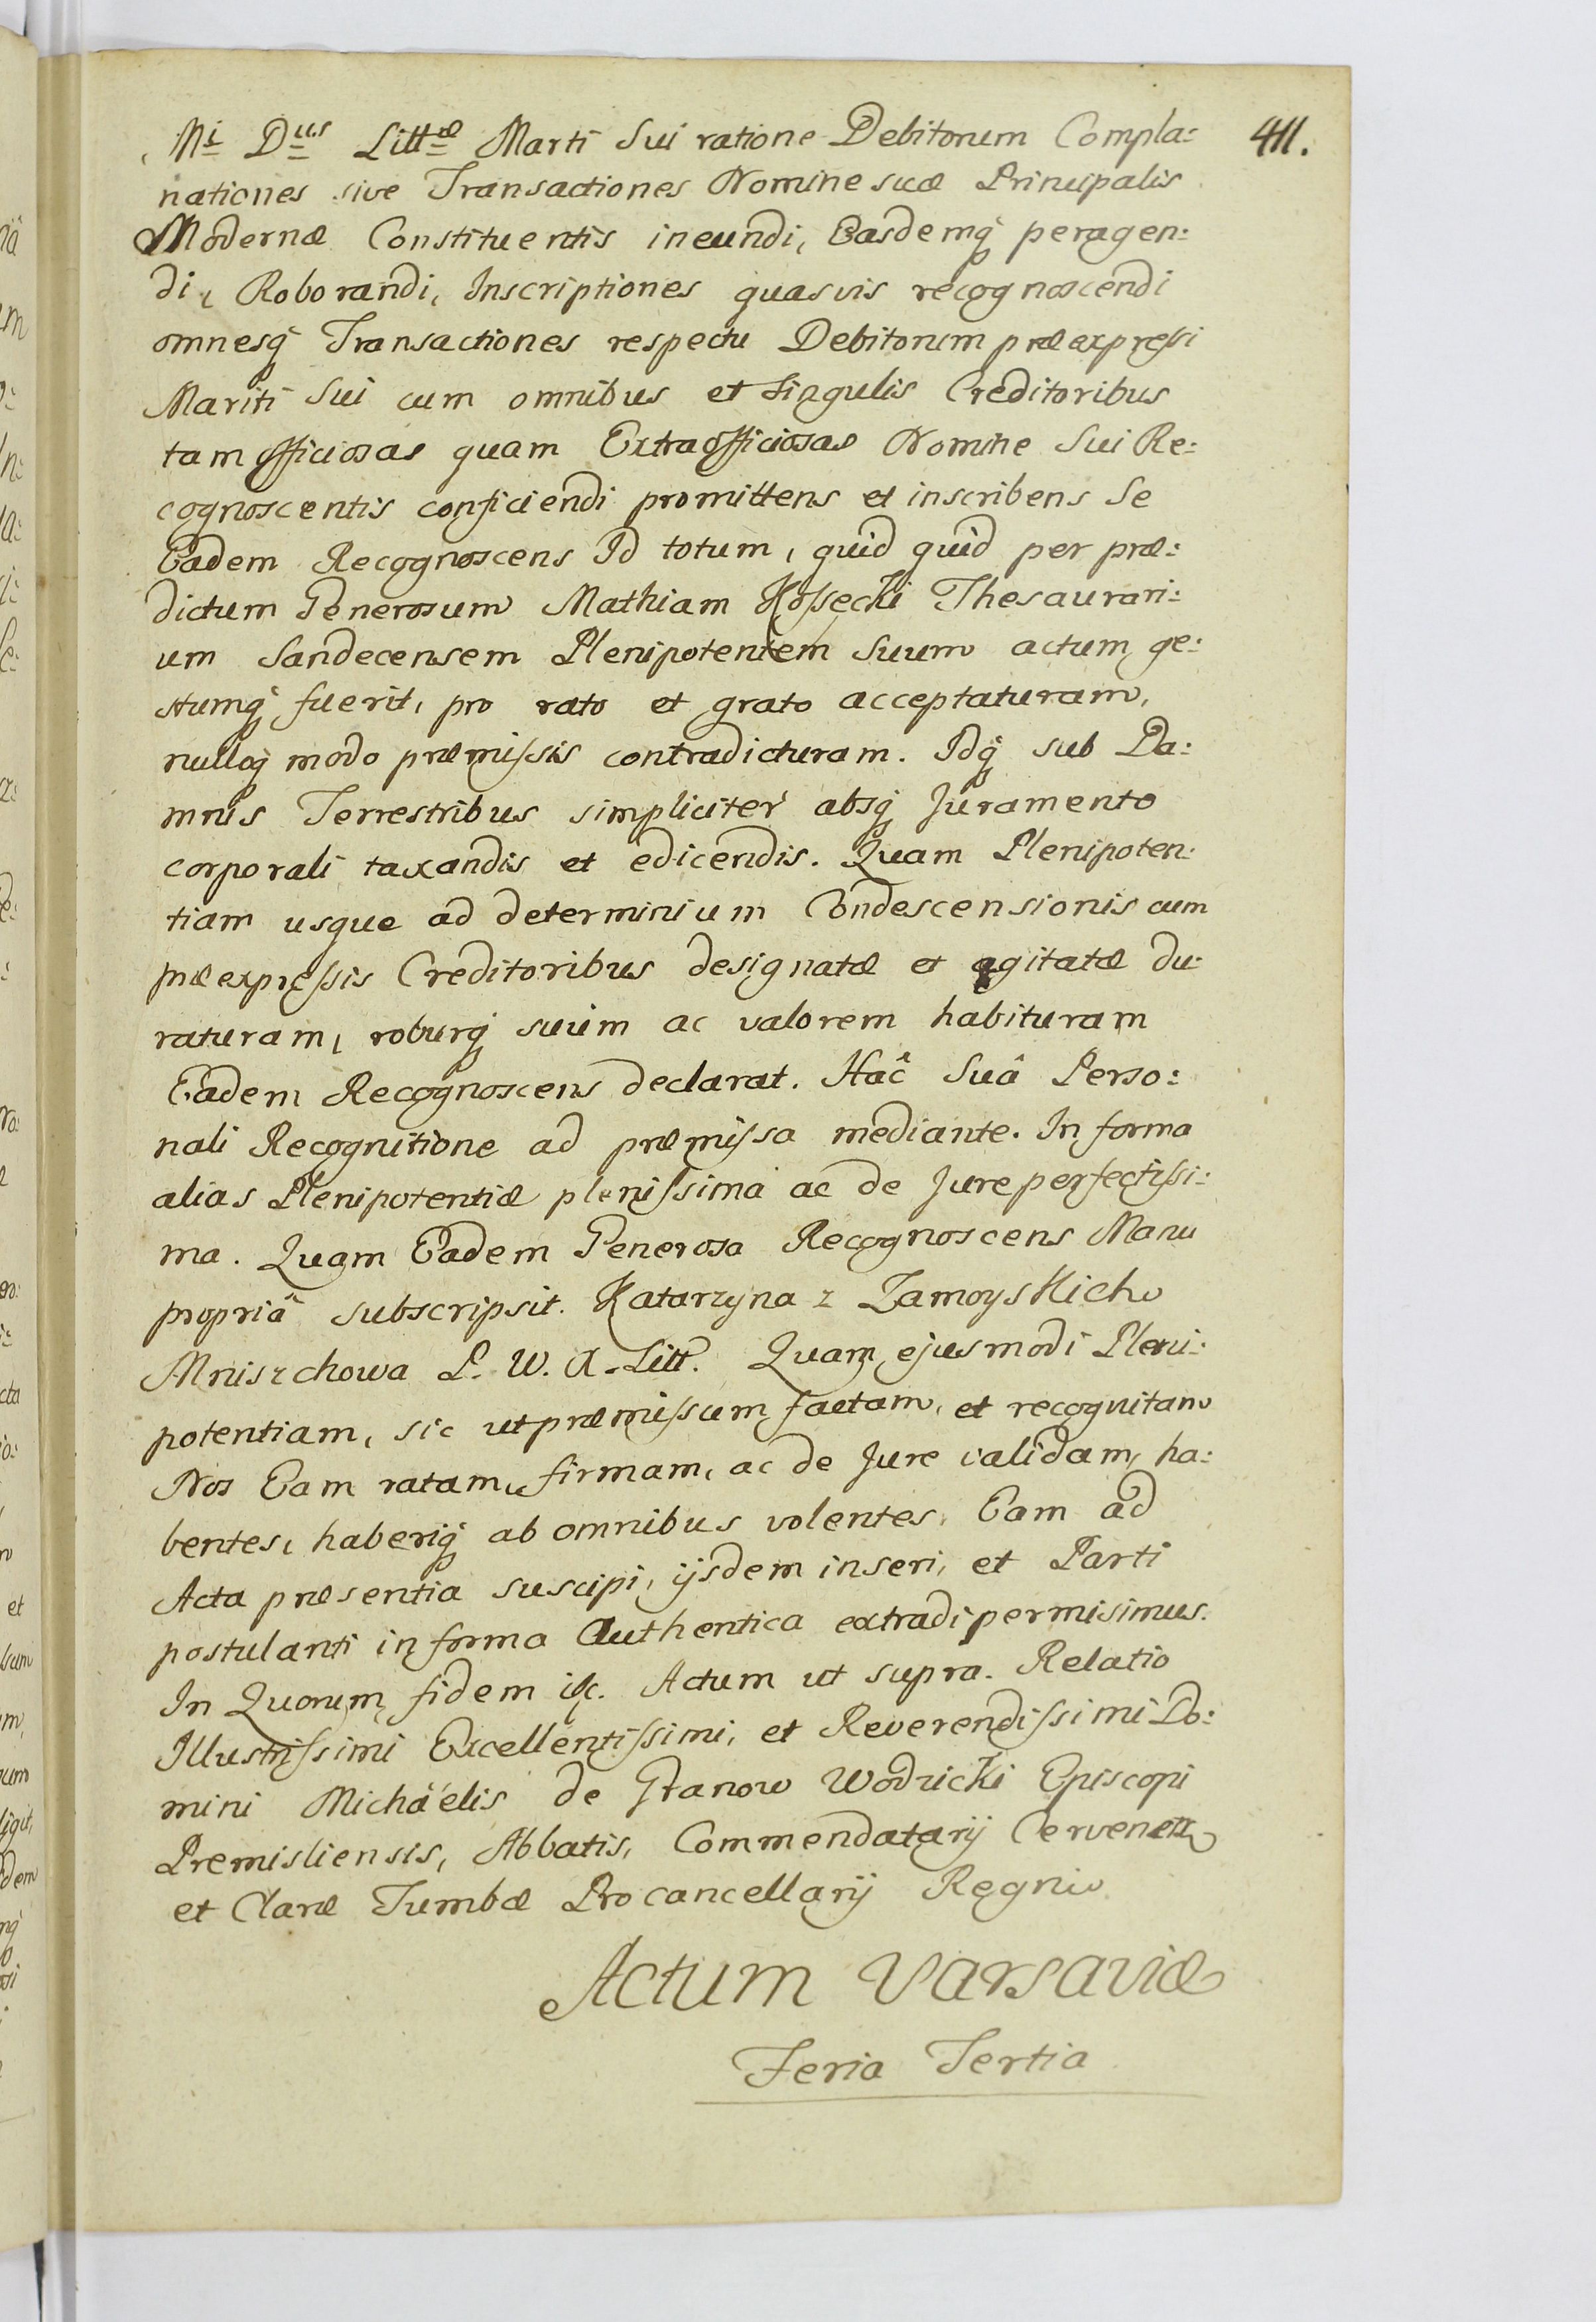 Mi Dus Littæ Marti Sui ratione Debitorum Compla: 411.
nationes sive Transactiones Nomine suæ Principalis
Modernæ Constituentis ineundi, Easdemq́ peragen:
di, Roborandi, Inscriptiones quasvis recognoscendi
omnesq́ Transactiones respectu Debitorum præexpreſsi
Mariti Sui cum omnibus et singulis Creditoribus
tam officiosas quam Extraofficiosas Nomine Sui Re:
cognoscentis conficiendi promittens et inscribens Se
Eadem Recognoscens Id totum, quid quid per præ:
dictum Generosum Mathiam Koſsecki Thesaurari:
um Sandecensem Plenipotentem Suum actum, ge:
stumq́ fuerit, pro rato et grato acceptaturam,
nulloq́ modo præmiſsis contradicturam. Idq́ sub Da:
mnis Terrestribus simpliciter absq́ Juramento
corporali taxandis et edicendis. Quam Plenipoten:
tiam usque ad determinium Condescensionis cum
præexpreſsis Creditoribus designatæ et agitatæ du:
raturam, roburq́ suum ac valorem habituram
Eadem Recognoscens declarat. Hac̑ Suâ Perso:
nali Recognitione ad præmiſsa mediante. In forma
alias Plenipotentiæ pleniſsima ac de Jure perfectiſsi:
ma. Quam Eadem Generosa Recognoscens Manu
propriâ subscripsit. Katarzyna z Zamoyskich
Mniszchowa P. W. X. Litt. Quam ejusmodi Pleni:
potentiam, sic ut præmiſsum factam, et recognitam
Nos Eam ratam, firmam, ac de Jure validam, ha:
bentes, haberiq́ ab omnibus volentes. Eam ad
Acta præsentia suscipi, ijsdem inseri, et Parti
postulanti in forma Authentica extradi permisimus.
In Quorum fidem Actum ut supra. Relatio
Illustriſsimi Excellentiſsimi, et Reverendiſsimi Do:
mini Michäelis de Granow Wodzicki Episcopi
Premisliensis, Abbatis, Commendatarij Cervenen
et Claræ Tumbæ Procancellarij Regni
Actum Varsaviæ
Feria Tertia